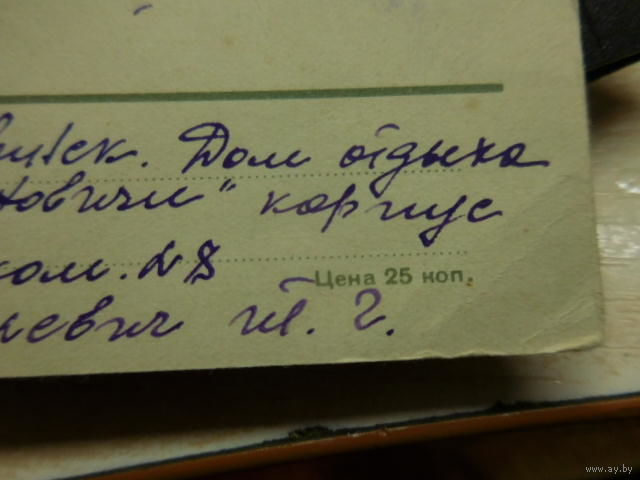 Дом отдыха
овичи" корпус
ком. №8
Цена 25 коп.
евич Т. Г.
www.ay.by